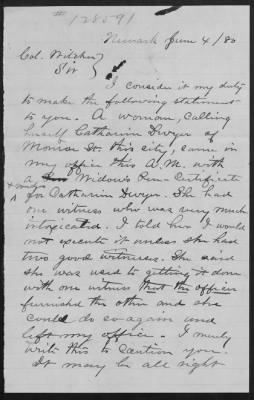 # 128591
Newark June 4/80
Col. Wilcher
Sir
I consider it my duty
to make the following statement
to you. A woman, calling
herself Catharin Dwyer of
Monroe St. this city, came in
my office this A.M. with
a Widows Pen- Certificate
for Catharin Dwyer. She had
one witness who was very much
intoxicated. I told her I would
not execute it unless she had
two good witnesses. She said
she was used to getting it done
with one witness that the officer
furnished the other and she
could do so again and
left my office. I merely
write this to caution you.
It may be all right